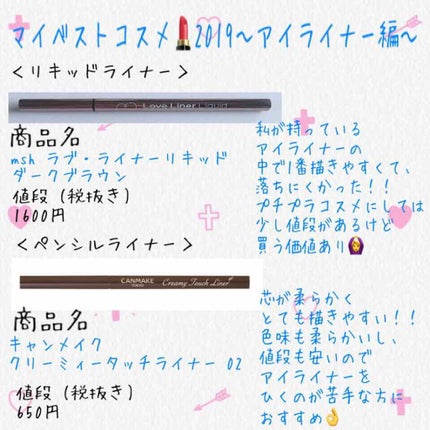 マイベストコスメ💄2019〜アイライナー編〜
＜リキッドライナー＞
Love Liner Liquid
商品名
msh ラブ・ライナーリキッド
ダークブラウン
値段（税抜き）
1600円
私が持っている
アイライナーの
中で1番描きやすくて、
落ちにくかった！！
プチプラコスメにしては
少し値段があるけど
買う価値あり🙆
＜ペンシルライナー＞
CANMAKE
TOKYO
Creamy Touch Liner
商品名
キャンメイク
クリーミィータッチライナー 02
値段（税抜き）
650円
芯が柔らかく
とても描きやすい！！
色味も柔らかいし、
値段も安いので
アイライナーを
ひくのが苦手な方に
おすすめ👌